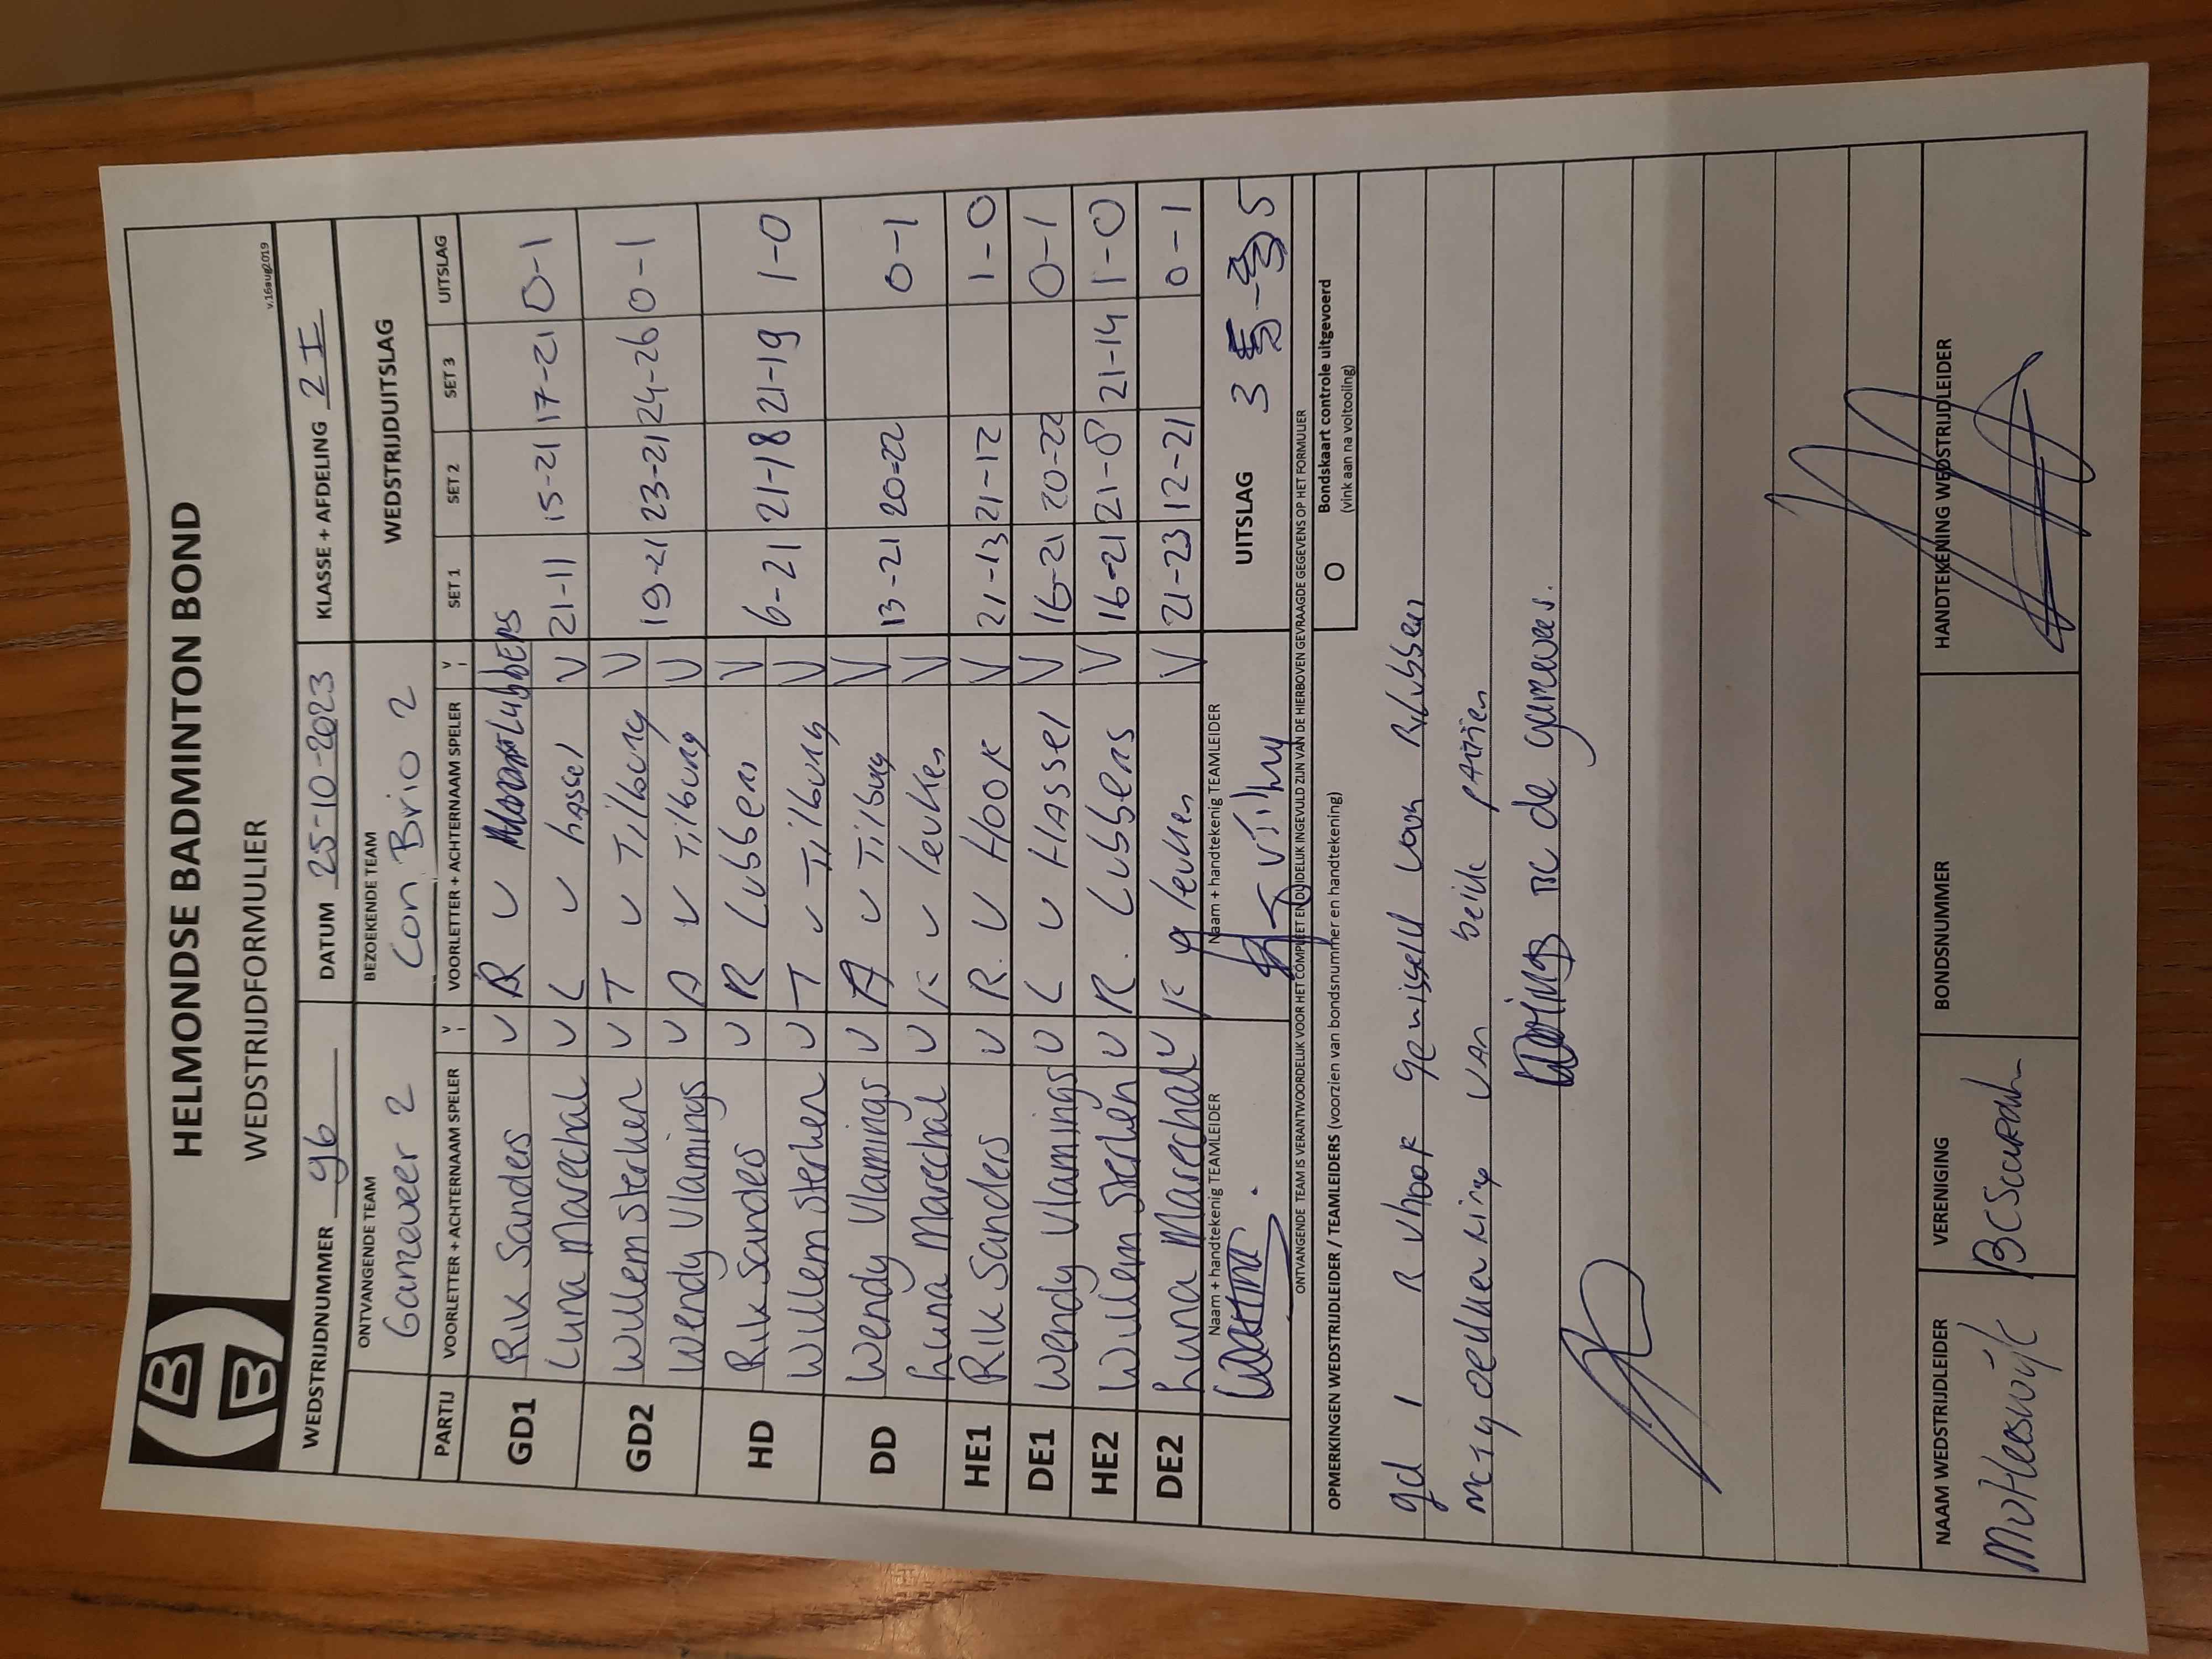 HELMONDSE BADMINTON BOND
WEDSTRIJDFORMULIER
v.16aug2019
WEDSTRIJDNUMMER 96 DATUM 25-10-2023 KLASSE + AFDELING 2 I
ONTVANGENDE TEAM BEZOEKENDE TEAM WEDSTRIJDUITSLAG
Ganzeveer 2 Con Brio 2
PARTIJ VOORLETTER + ACHTERNAAM SPELER V VOORLETTER + ACHTERNAAM SPELER V SET 1 SET 2 SET 3 UITSLAG
GD1 Rik Sanders V R V Lubbers
Luna Marechal V L v hassel V 21-11 15-21 17-21 0-1
GD2 Willem Sterken V T v Tilburg V
Wendy Vlamings V A v Tilburg V 19-21 23-21 24-26 0-1
HD Rik Sanders V R Lubbers V
Willem Sterken V T v Tilburg V 6-21 21-18 21-19 1-0
DD Wendy Vlamings V A v Tilburg V
Luna Marechal V K v leuken V 13-21 20-22 0-1
HE1 Rik Sanders V R. V HOOK V 21-13 21-12 1-0
DE1 Wendy Vlamings V L v HASSel V 16-21 20-22 0-1
HE2 Willem Sterken V R. Lubbers V 16-21 21-8 21-14 1-0
DE2 Luna Marechal V K v leuken V 21-23 12-21 0-1
Naam + handtekenig TEAMLEIDER Naam + handtekenig TEAMLEIDER UITSLAG 3 - 5
ONTVANGENDE TEAM IS VERANTWOORDELIJK VOOR HET COMPLEET EN DUIDELIJK INGEVULD ZIJN VAN DE HIERBOVEN GEVRAAGDE GEGEVENS OP HET FORMULIER
OPMERKINGEN WEDSTRIJDLEIDER / TEAMLEIDERS (voorzien van bondsnummer en handtekening) O Bondskaart controle uitgevoerd
(vink aan na voltooiing)
gd 1 R vhook gewisseld voor R Lubbers
met goedkeuring van beide partijen
BC de ganzeveer.
NAAM WEDSTRIJDLEIDER VERENIGING BONDSNUMMER HANDTEKENING WEDSTRIJDLEIDER
MvHeeswijk